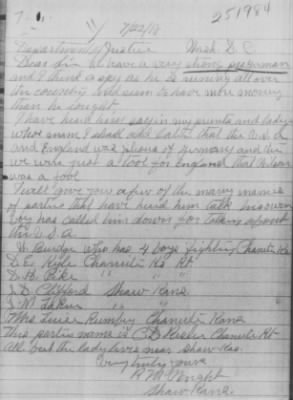 251984
7/22/18
Department of Justice Wash D C
Dear Sir We have a very strong pro german
and I think a spy as he is running all over
the country and seem to have more money
than he ought
I have heard him say in my and lady
whos name I shall add later that the U.S.A
and England was jelous of germany and that
we were just a tool for england that Wilson
was a fool
I will give you a few of the many names
of parties that have heard him talk his own
boy has called him down for talking against
the U.S.A.
W Burdge who has 4 boys fighting Chanute Ks
D. E. Kyle Chanute Ks Rt
D. H. Pike " " "
J. D. Clifford Shaw Kans
J. M. " "
Mrs Lucie Rumbey Chanute Kans
This parties name is C. D. Chanute Rt
All but the lady lives near Shaw Kas.
Very truly yours
R. M. Wright
Shaw Kans.